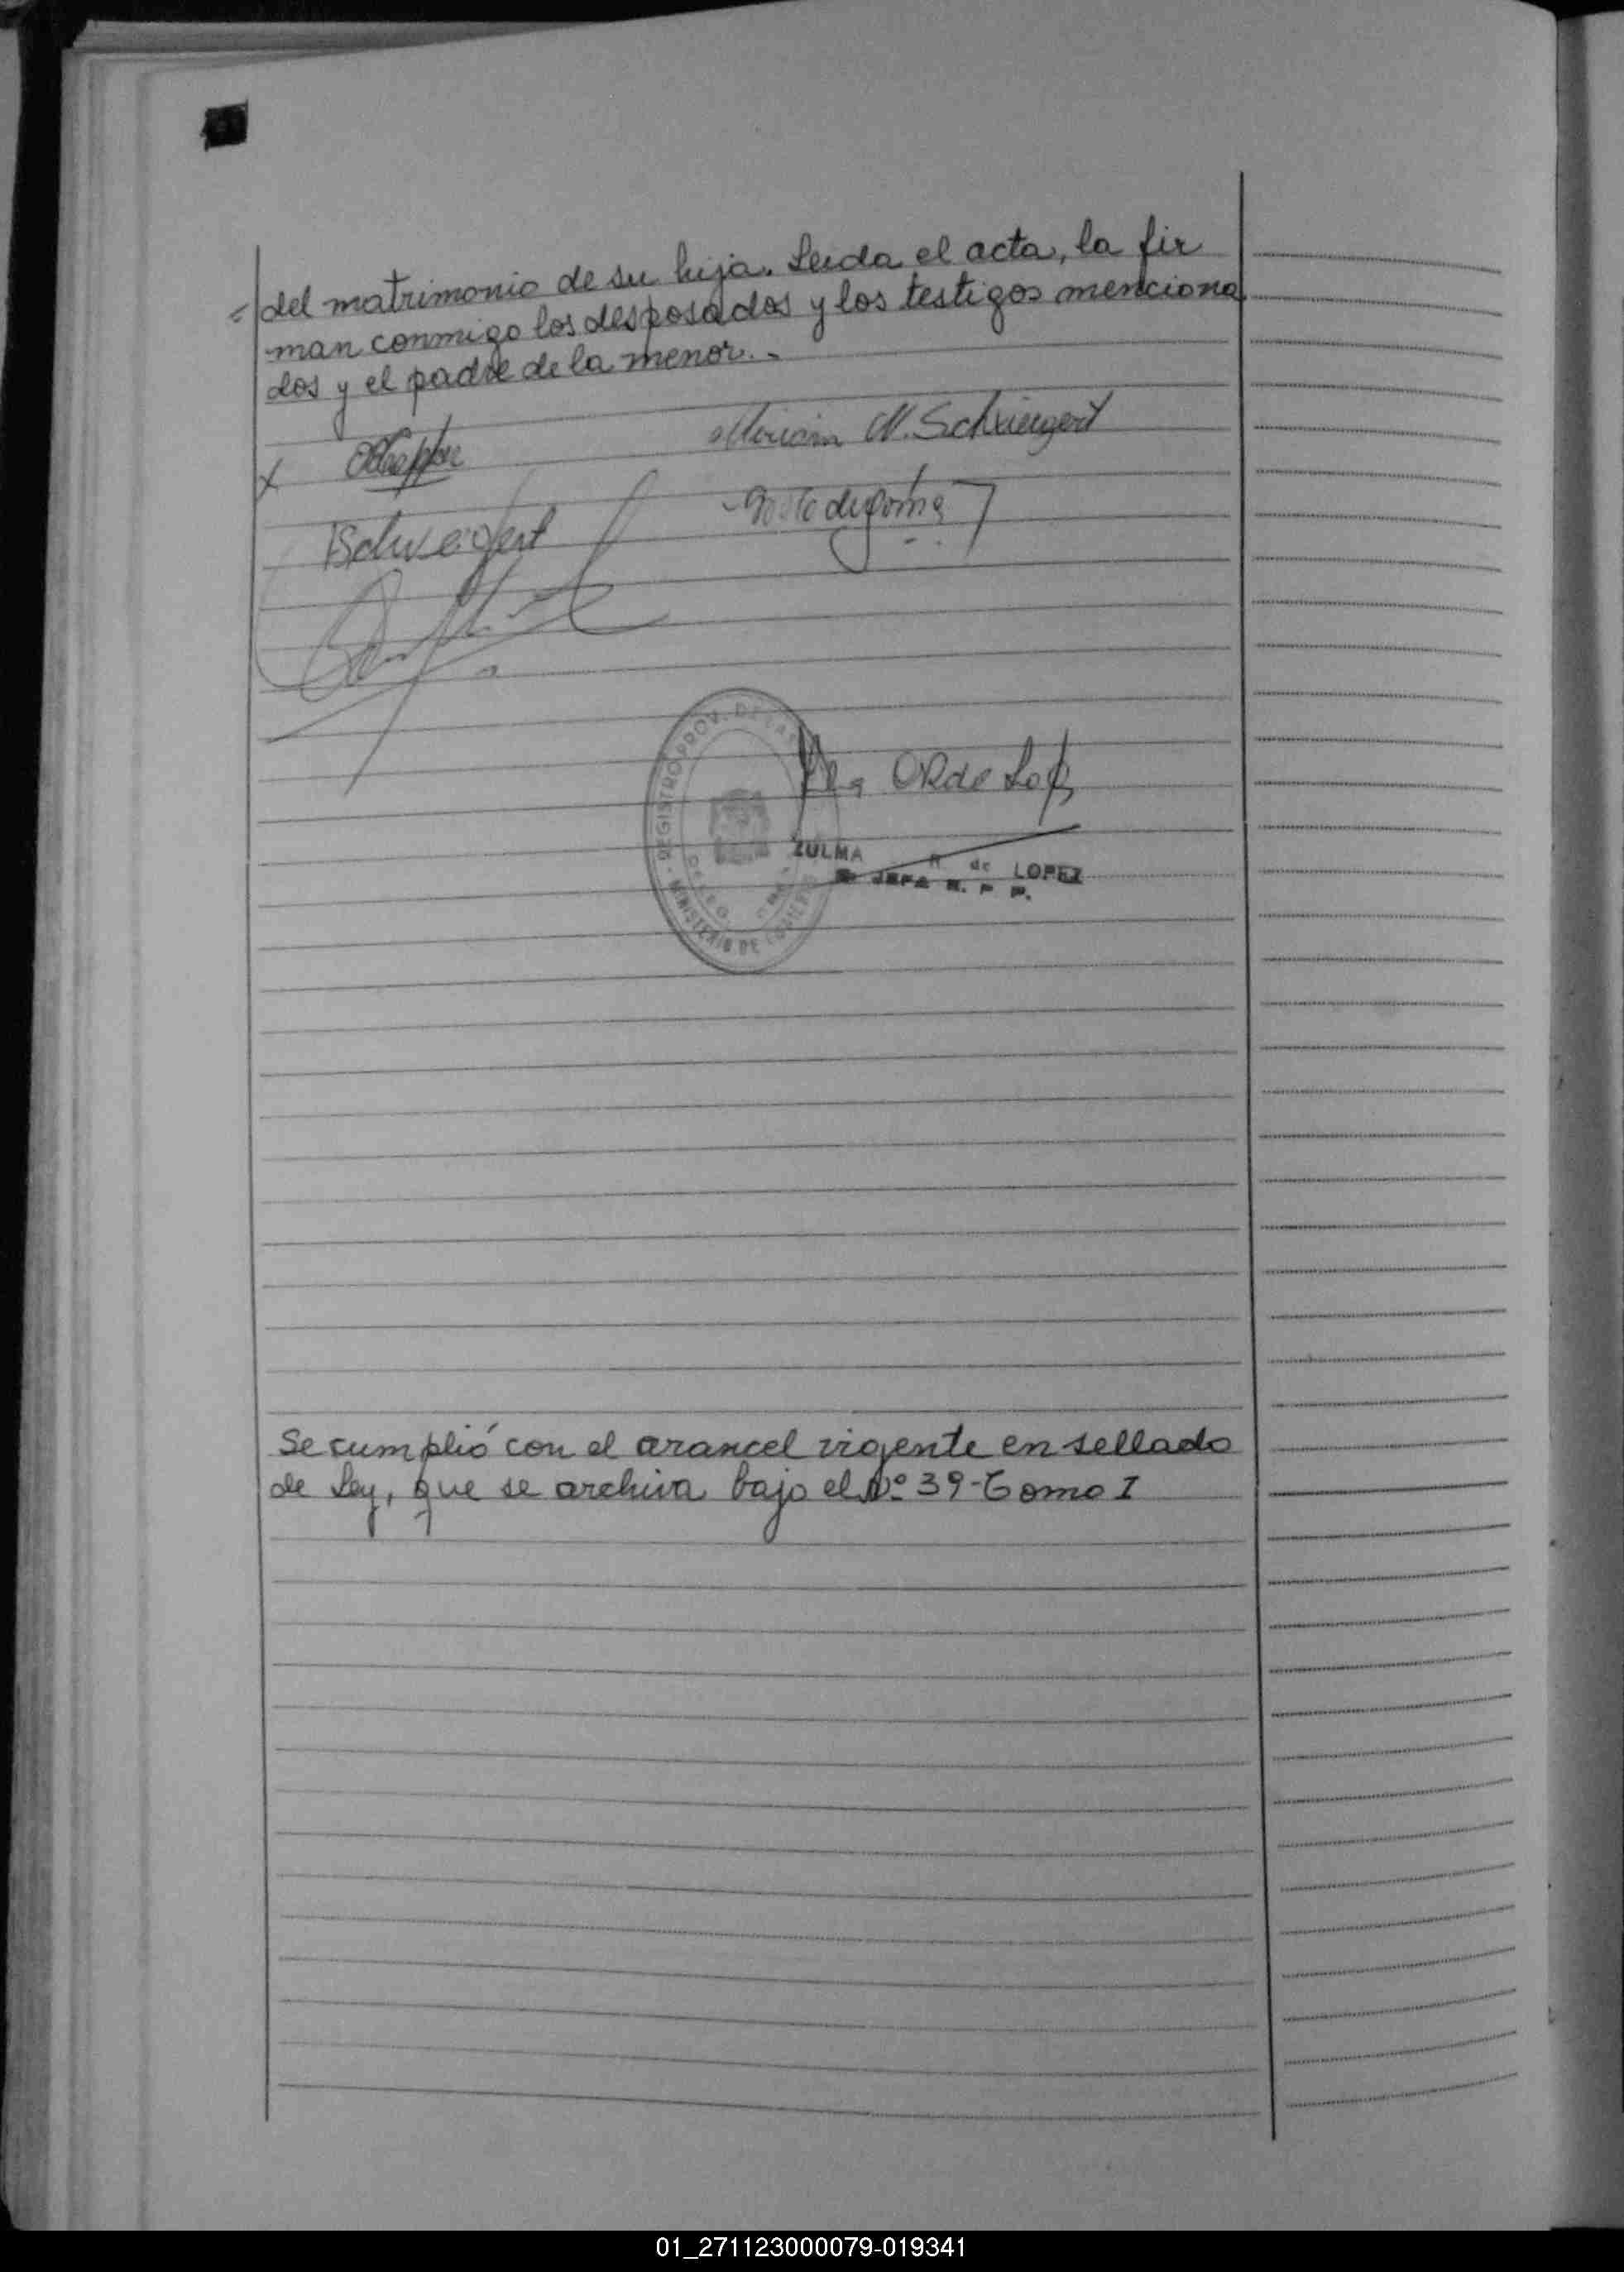 = del matrimonio de su hija. Leida el acta, la fir
man conmigo los desposados y los testigos menciona
dos y el padre de la menor.-
X
Miriam N. Schweigert
Schweigert
REGISTRO PROV. DE LAS
MINISTERIO DE
ZULMA R. de LOPEZ
JEFA R. P. P.
Se cumplió con el arancel vigente en sellado
de Ley, que se archiva bajo el Nº 39-Tomo I
01_271123000079-019341